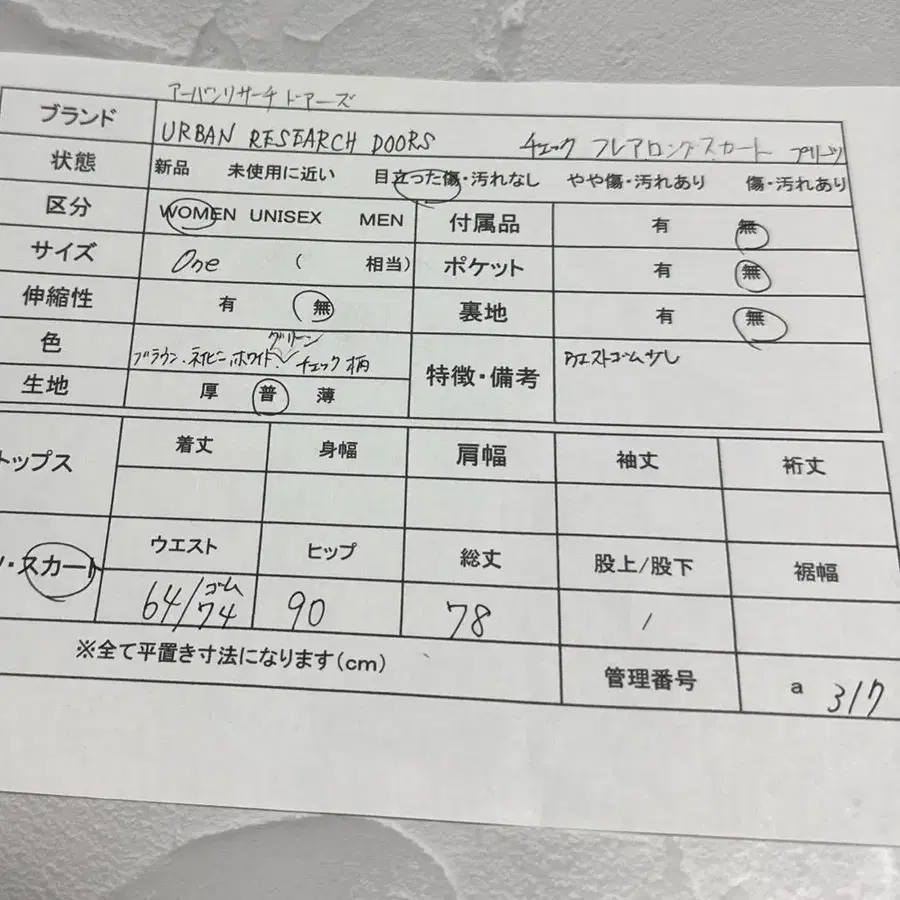 アーバンリサーチ ドアーズ
ブランド URBAN RESEARCH DOORS チェック フレアロングスカート プリーツ
状態 新品 未使用に近い 目立った傷・汚れなし やや傷・汚れあり 傷・汚れあり
区分 WOMEN UNISEX MEN 付属品 有 無
サイズ One ( 相当) ポケット 有 無
伸縮性 有 無 裏地 有 無
グリーン
色 ブラウン.ネイビー.ホワイト. チェック柄 特徴・備考 ウエストゴム
生地 厚 普 薄
トップス 着丈 身幅 肩幅 袖丈 裄丈
・スカート ウエスト ヒップ 総丈 股上/股下 裾幅
ゴム
64/74 90 78 /
※全て平置き寸法になります(cm) 管理番号 a 317